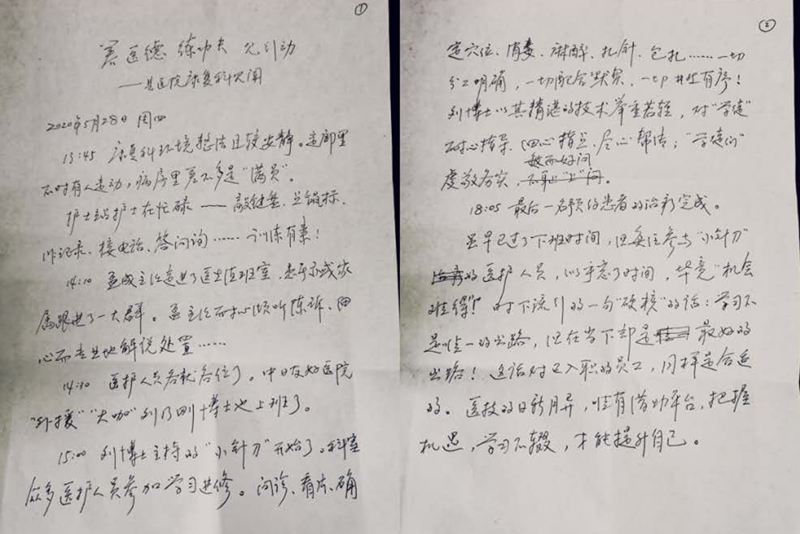 ①
善医德 练功夫 见行动
——县医院康复科见闻
2020年5月28日 周四
13:45 康复科环境整洁且较安静。走廊里
不时有人走动,病房里差不多是“满员”。
护士站护士在忙碌——敲键盘、点鼠标、
作记录、接电话、答问询……训练有素!
14:10 孟成主任走进了医生值班室,患者或家
属跟进了一大群。孟主任耐心倾听陈诉、细
心而专业地解说处置……
14:30 医护人员各就各位了。中日友好医院
“外援”“大咖”刘乃刚博士也上班了。
15:00 刘博士主持的“小针刀”开始了。科室
众多医护人员参加学习进修。问诊、看片、确
②
定穴位、消毒、麻醉、扎针、包扎……一切
分工明确,一切配合默契,一切井然有序!
刘博士以其精湛的技术举重若轻,对“学徒”
耐心指导、细心指点、尽心帮传;“学徒们”
敏而好问
虔敬务实、
18:05 最后一名预约患者的治疗完成。
虽早已过了下班时间,但每位参与“小针刀”
的医护人员,似乎忘了时间,毕竟“机会
难得”!时下流行的一句“硬核”的话:学习不
是唯一的出路,但在当下却是最好的
出路!这话对已入职的员工,同样是合适
的。医技的日新月异,唯有借助平台,把握
机遇,学习不辍,才能提升自己。